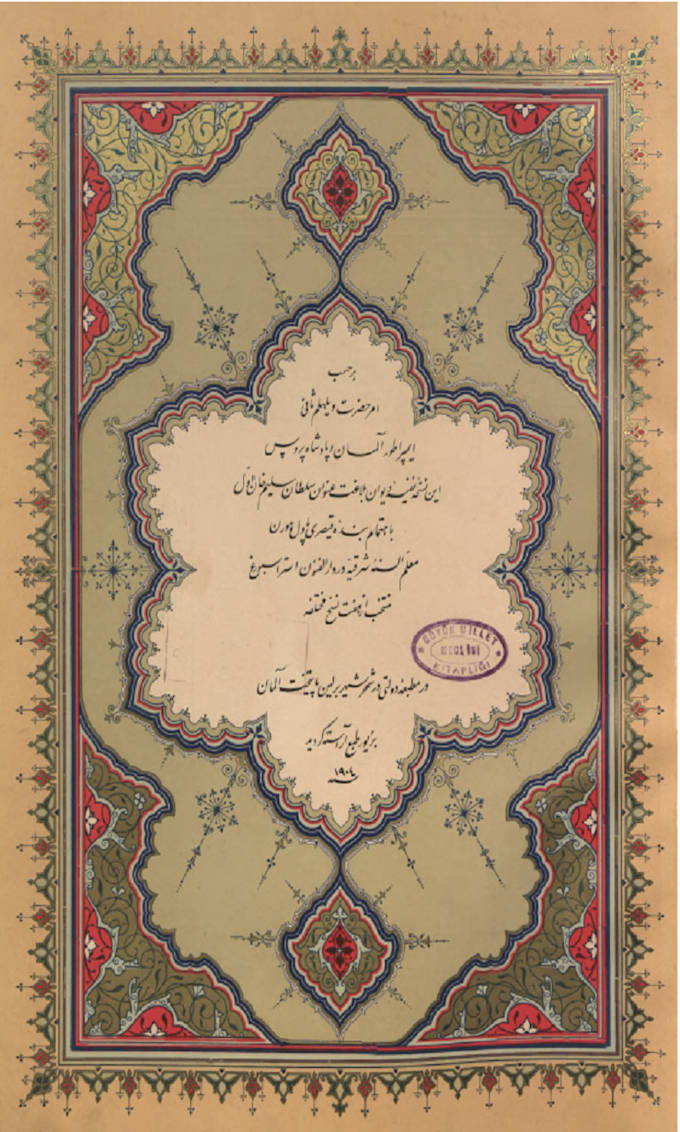 بر حسب
امر حضرت ویلهلم ثانی
ایمپراطور آلمان و پادشاه پروس
این نسخهٔ نفیسهٔ دیوان بلاغت عنوان سلطان سلیم خان اول
باهتمام بندهٔ قیصری پاول هورن
معلم السنهٔ شرقیه در دار الفنون استراسبورغ
منتخب از هفت نسخ مختلفه
BÜYÜK MİLLET
KİTAPLIĞI
در مطبعهٔ دولتی در شهر شهیر برلین پایتخت آلمان
بزیور طبع آراسته گردید
سنه ۱۹۰۴